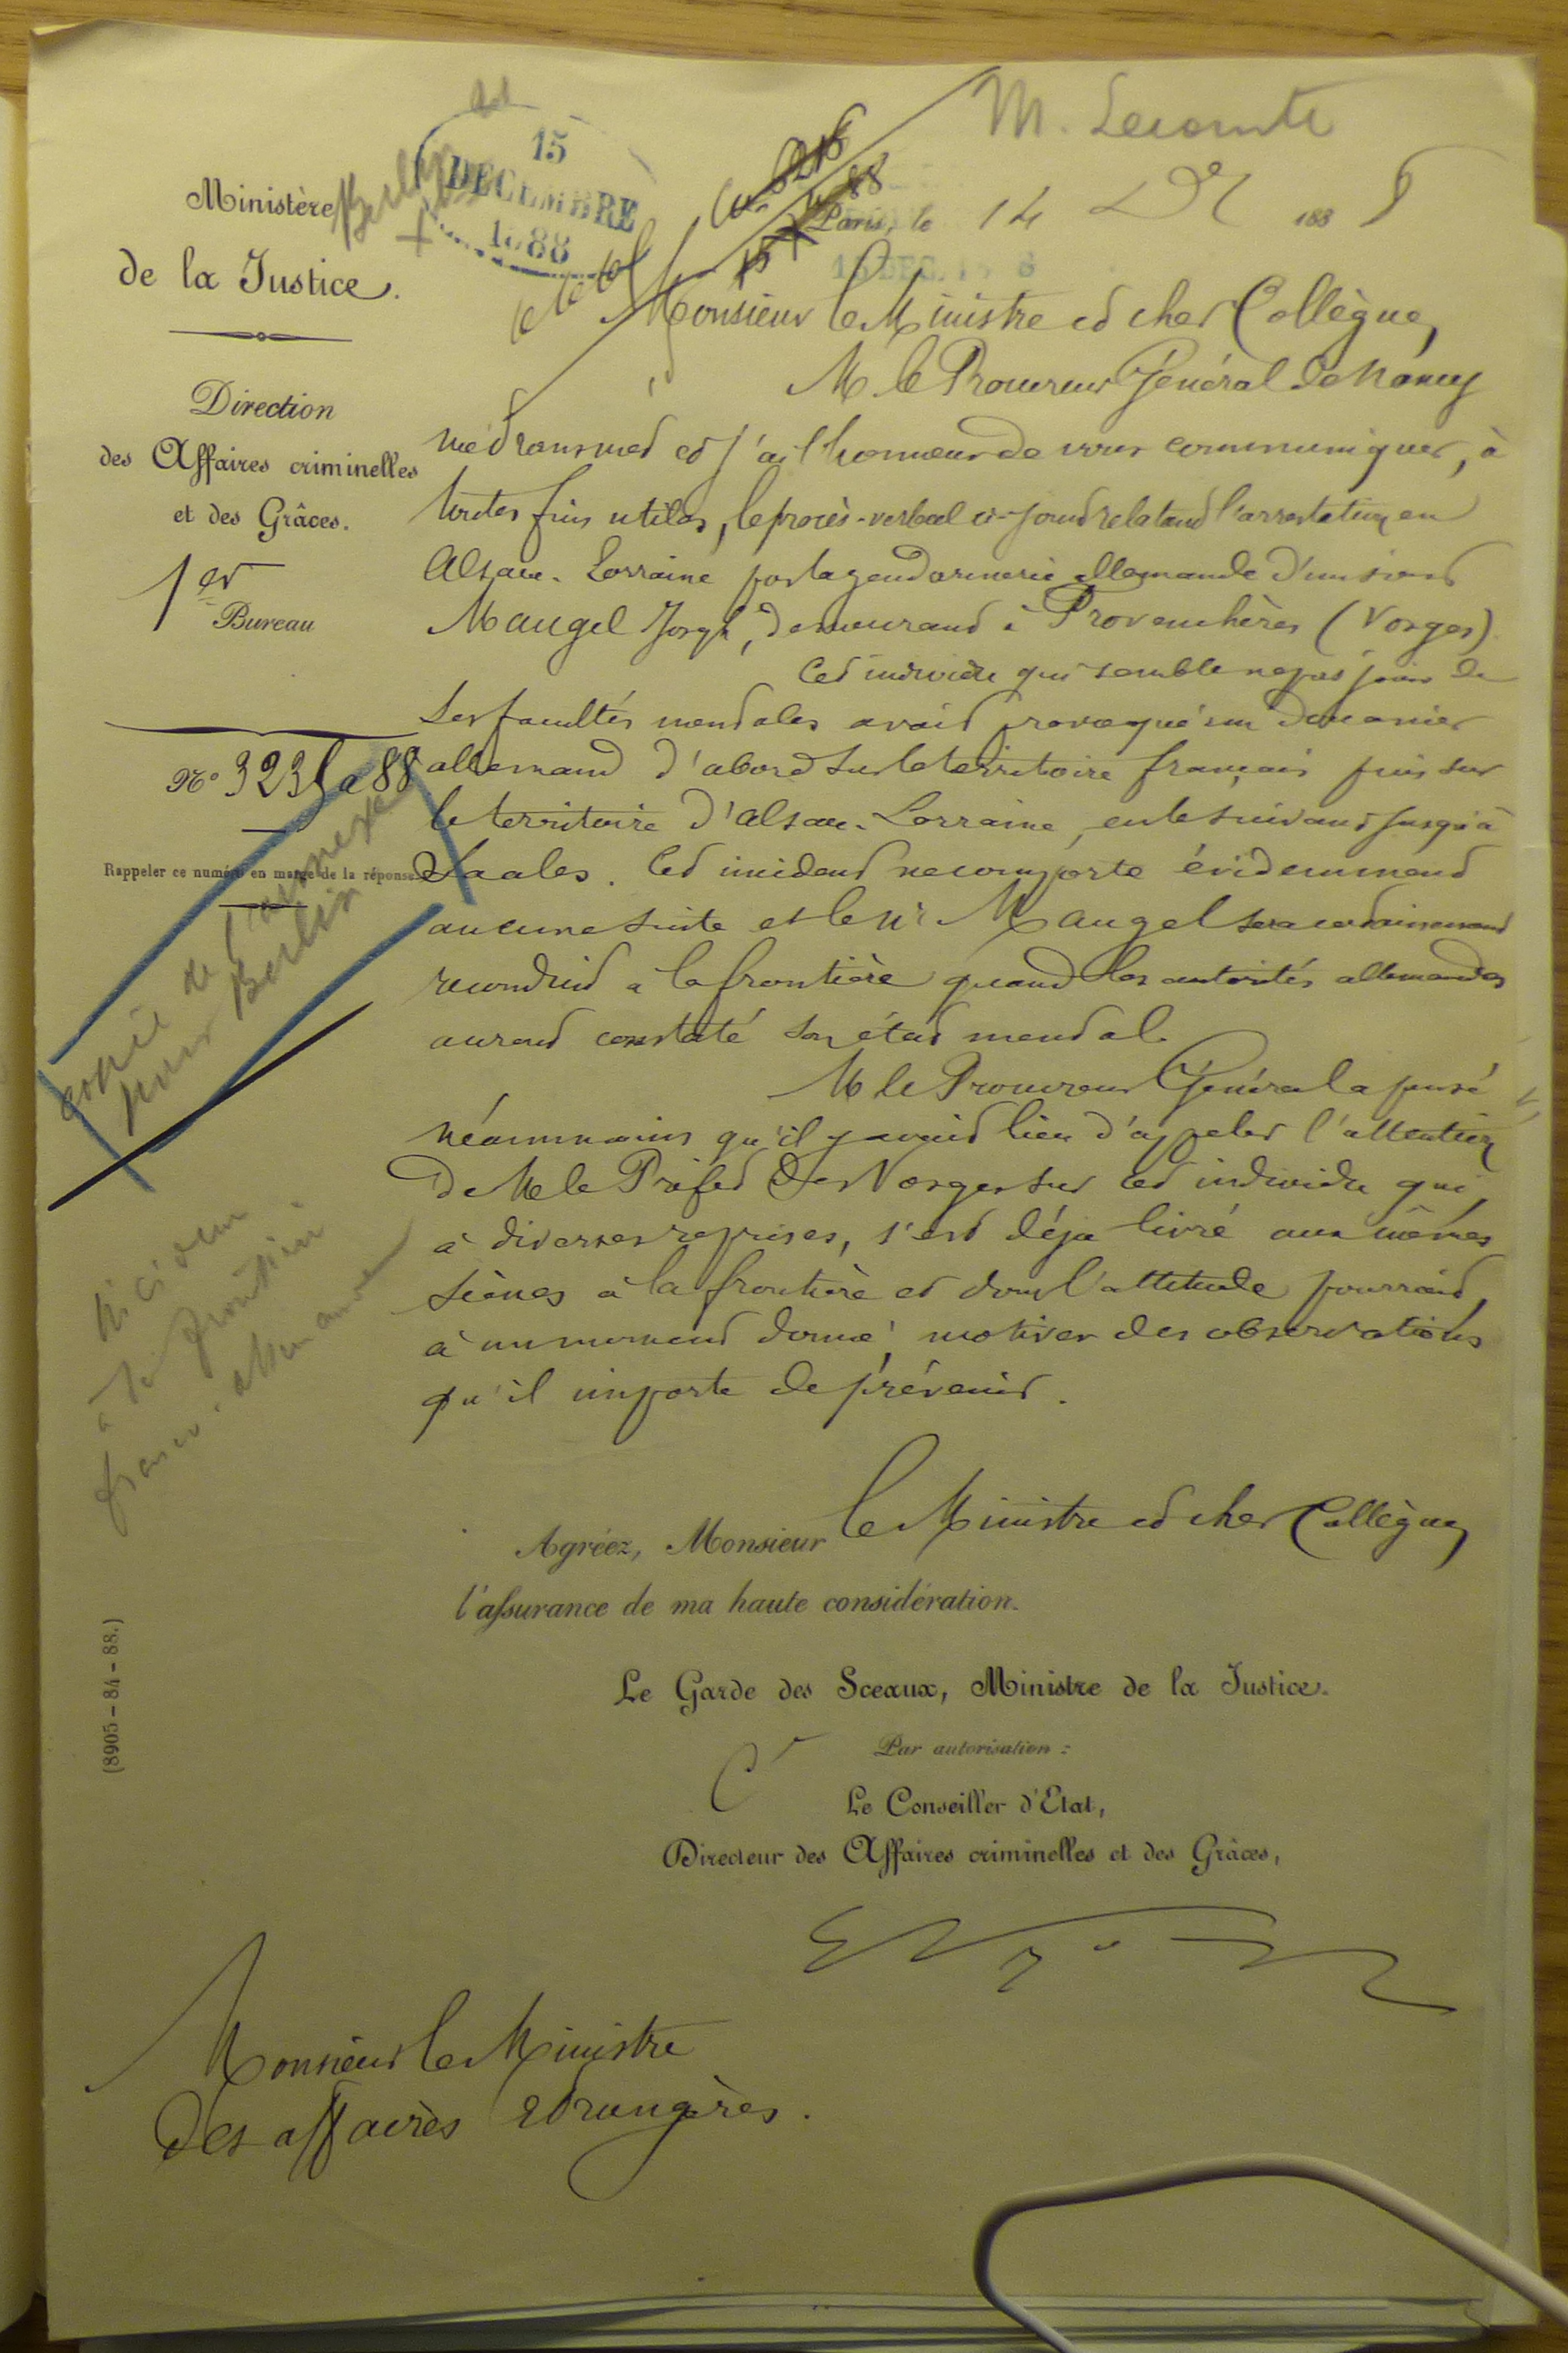 M. Lecomte
15
DECEMBRE
1888
Ministère
de la Justice.
Berlin
Paris, le 14 Dbre 1888
Direction
des Affaires criminelles
et des Grâces.
1er
Bureau
No 3235 a 88
Rappeler ce numéro en marge de la réponse.
copie de l'annexe
pour Berlin
Incident
à la frontière
franco-allemande
(8905-84-88.)
Monsieur le Ministre et cher Collègue,
M le Procureur Général de Nancy
me transmet et j'ai l'honneur de vous communiquer, à
toutes fins utiles, le procès-verbal ci-joint relatant l'arrestation en
Alsace-Lorraine par la gendarmerie allemande d'un sieur
Maugel Joseph, demeurant à Provenchères (Vosges).
Cet individu qui semble ne pas jouir de
ses facultés mentales avait provoqué un douanier
allemand d'abord sur le territoire français puis sur
le territoire d'Alsace-Lorraine, en le suivant jusqu'à
Saales. Cet incident ne comporte évidemment
aucune suite et le sr Maugel sera certainement
reconduit à la frontière quand les autorités allemandes
auront constaté son état mental.
M le Procureur Général a pensé
néanmoins qu'il y avait lieu d'appeler l'attention
de M le Préfet des Vosges sur cet individu qui,
à diverses reprises, s'est déjà livré aux mêmes
scènes à la frontière et dont l'attitude pourrait,
à un moment donné, motiver des observations
qu'il importe de prévenir.
Agréez, Monsieur le Ministre et cher Collègue,
l'assurance de ma haute considération.
Le Garde des Sceaux, Ministre de la Justice.
Par autorisation :
Le Conseiller d'Etat,
Directeur des Affaires criminelles et des Grâces,
Monsieur le Ministre
des affaires étrangères.